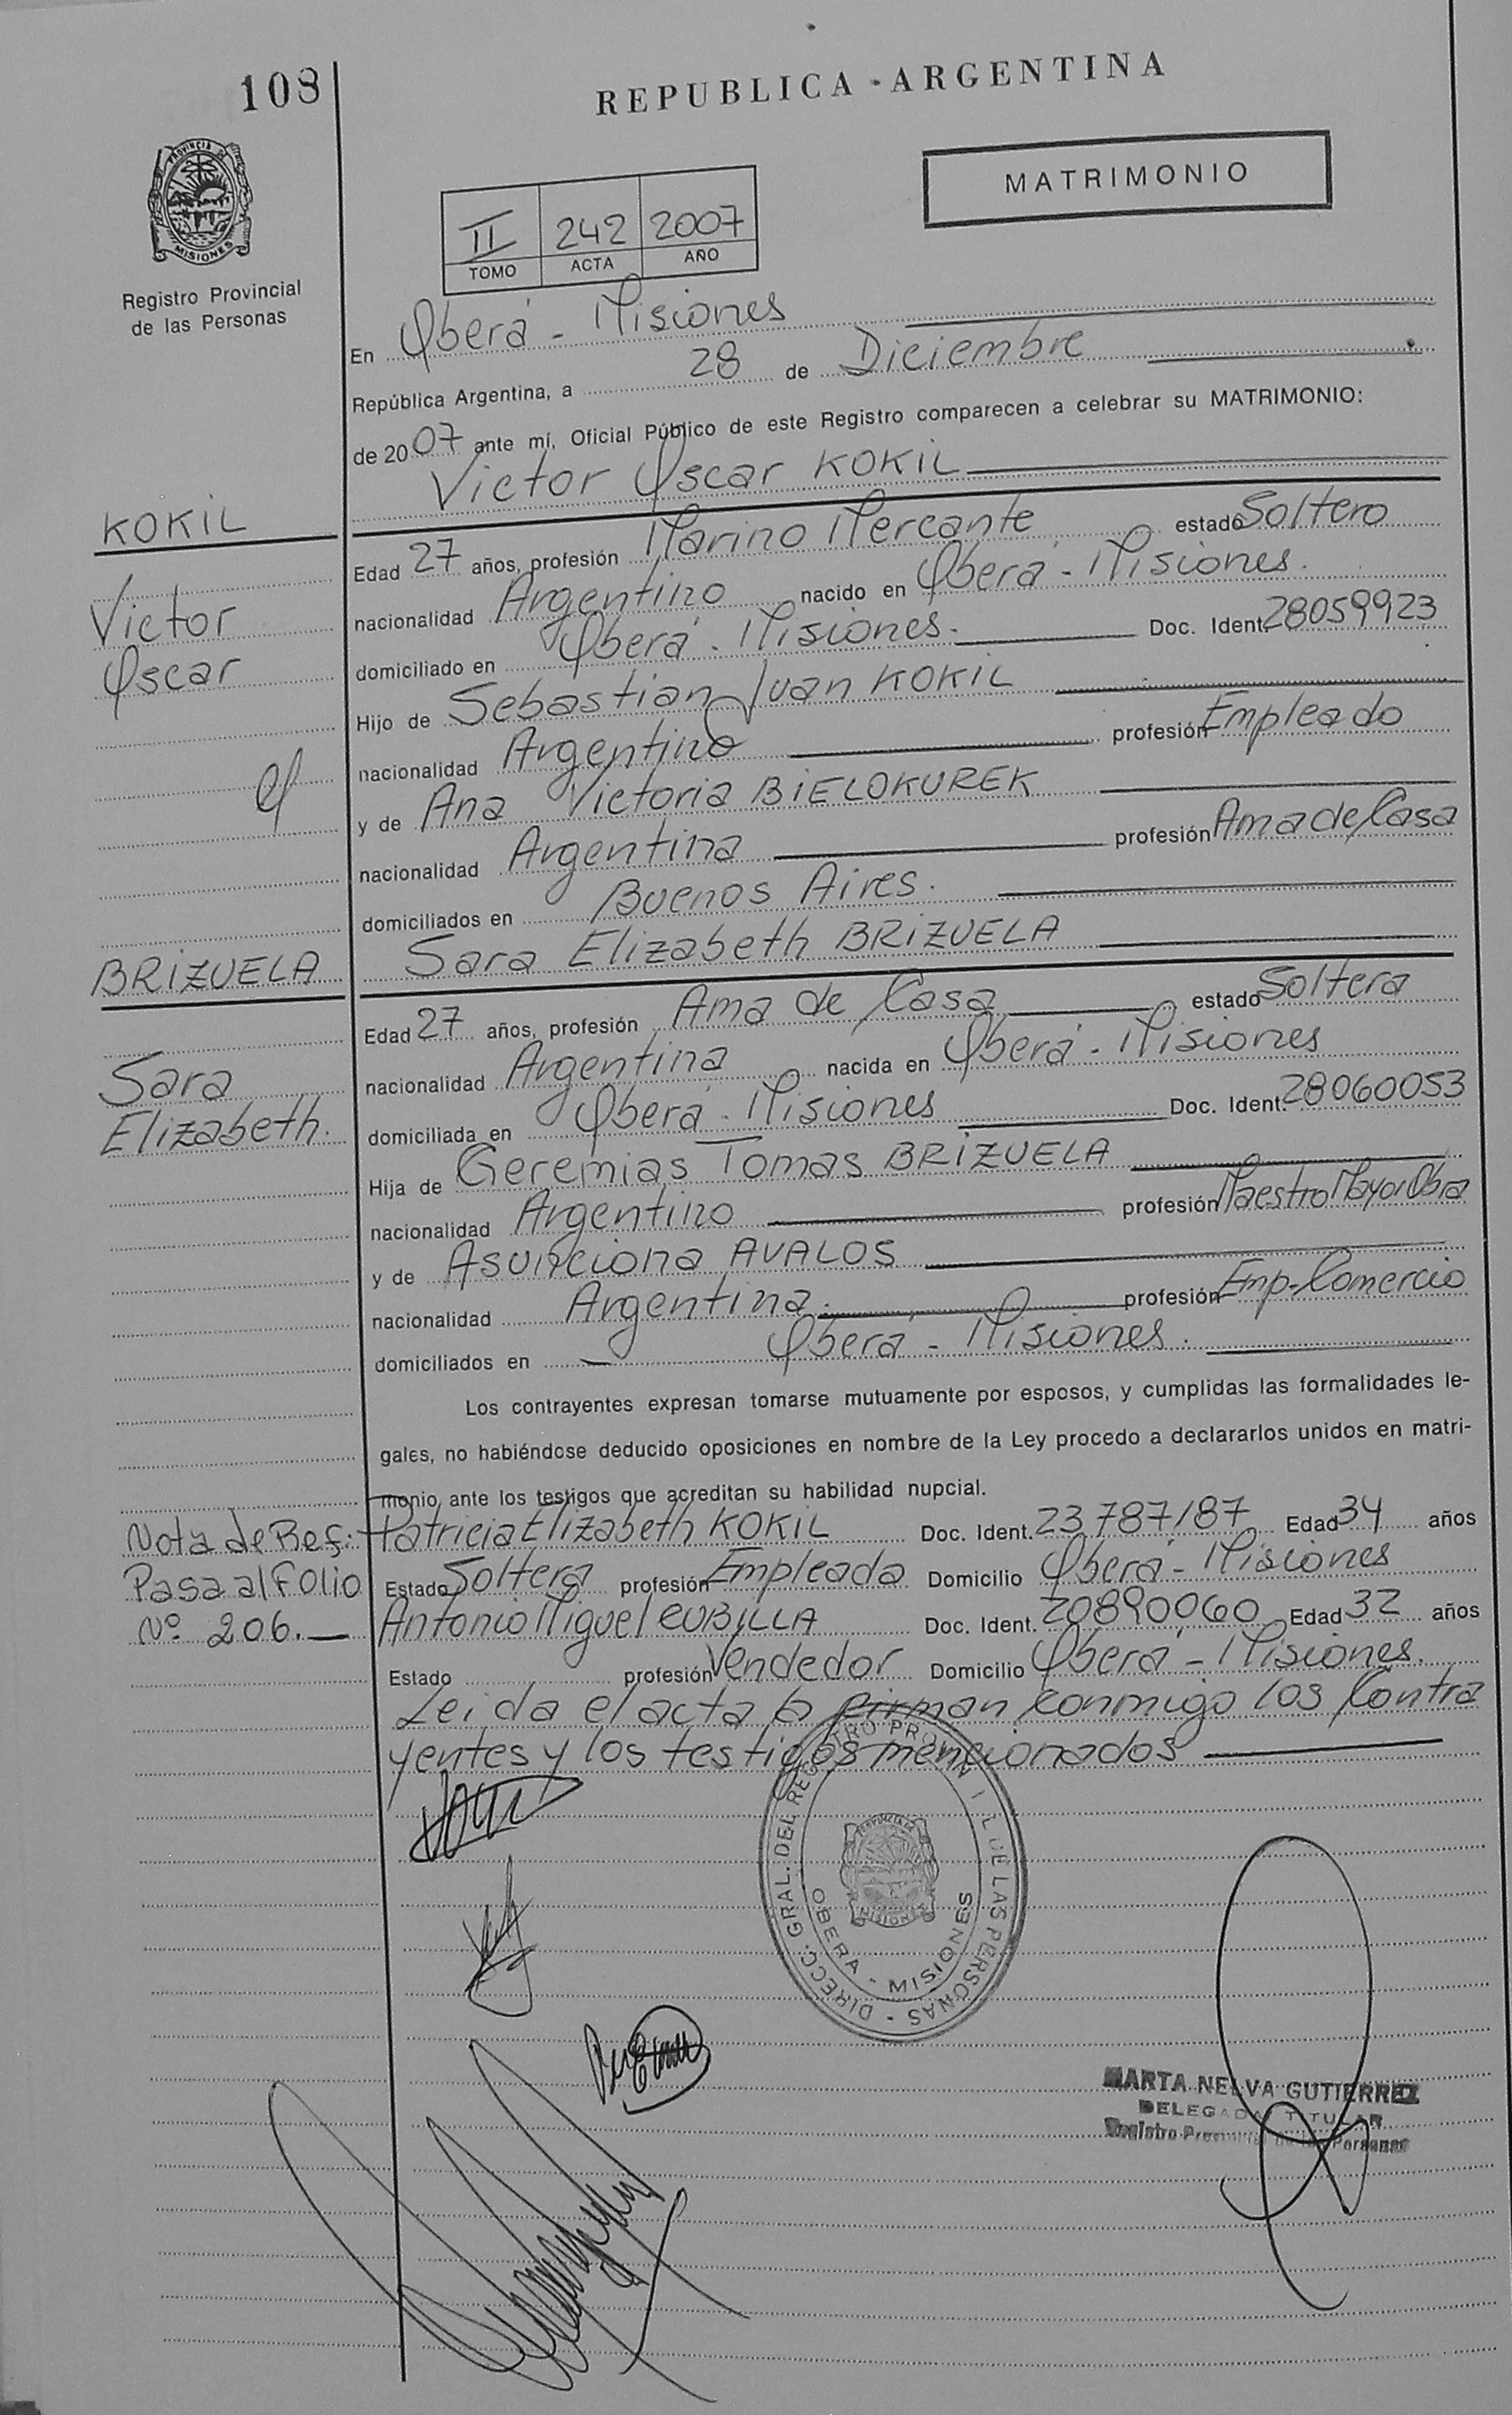 108
REPUBLICA - ARGENTINA
MATRIMONIO
PROVINCIA
MISIONES
Registro Provincial
de las Personas
II 242 2007
TOMO ACTA AÑO
En Oberá - Misiones
República Argentina, a 28 de Diciembre
de 2007 ante mí, Oficial Público de este Registro comparecen a celebrar su MATRIMONIO:
Victor Oscar KOKIL
KOKIL
Victor
Oscar
Edad 27 años, profesión Marino Mercante estado Soltero
nacionalidad Argentino nacido en Oberá - Misiones.
domiciliado en Oberá - Misiones. Doc. Ident. 28059923
Hijo de Sebastian Juan KOKIL
nacionalidad Argentino profesión Empleado
y de Ana Victoria BIELOKUREK
nacionalidad Argentina profesión Ama de Casa
domiciliados en Buenos Aires.
Sara Elizabeth BRIZUELA
BRIZUELA
Sara
Elizabeth.
Edad 27 años, profesión Ama de Casa estado Soltera
nacionalidad Argentina nacida en Oberá - Misiones
domiciliada en Oberá - Misiones Doc. Ident. 28060053
Hija de Geremias Tomas BRIZUELA
nacionalidad Argentino profesión Maestro Mayor Obra
y de Asunciona AVALOS
nacionalidad Argentina. profesión Emp-Comercio
domiciliados en Oberá - Misiones.
Los contrayentes expresan tomarse mutuamente por esposos, y cumplidas las formalidades le-
gales, no habiéndose deducido oposiciones en nombre de la Ley procedo a declararlos unidos en matri-
monio ante los testigos que acreditan su habilidad nupcial.
Nota de Ref:
Pasa al Folio
Nº 206.
Patricia Elizabeth KOKIL Doc. Ident. 23787187 Edad 34 años
Estado Soltera profesión Empleada Domicilio Oberá - Misiones
Antonio Miguel CUBILLA Doc. Ident. 20890060 Edad 32 años
Estado profesión Vendedor Domicilio Oberá - Misiones.
Leida el acta la firman conmigo los Contra
yentes y los testigos mencionados
DIRECC. GRAL. DEL REGISTRO PROVINCIAL DE LAS PERSONAS
OBERA - MISIONES
MARTA NELVA GUTIERREZ
DELEGADA TITULAR
Registro Provincial de las Personas